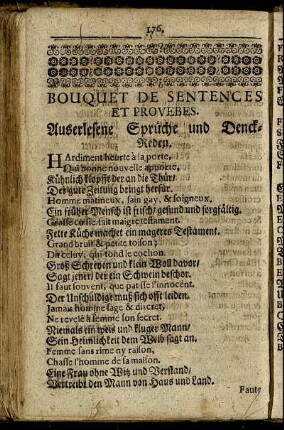 176.
BOUQUET DE SENTENCES
ET PROVEBES.
Auserlesene Sprüche und Denck-
Reden.
HArdiment heurte à la porte,
Qui bonne nouvelle apporte,
Kühnlich klopfft der an die Thür/
Der gute Zeitung bringt herfür.
Homme matineux, sain gay, & soigneux,
Ein früher Mensch ist frisch/ gesund und sorgfältig.
Grasse cuisse fait maigre testament.
Fette Küche machet ein mageres Testament.
Grand bruit & petite toison;
Dit celoy, qui tond le cochon.
Groß Schreyen und klein Woll davor/
Sagt jener/ der ein Schwein beschor.
Il faut souvent, que patisse l'innocent.
Der Unschüldige muß sich offt leiden.
Jamais homme sage & discret,
Ne revele à femme son secret.
Niemals ein weis und kluger Mann/
Sein Heimlichkeit dem Weib sagt an.
Femme sans rime ny raison,
Chasse l'homme de sa maison.
Eine Frau ohne Witz und Verstand/
Vertreibt den Mann von Haus und Land.
Faute